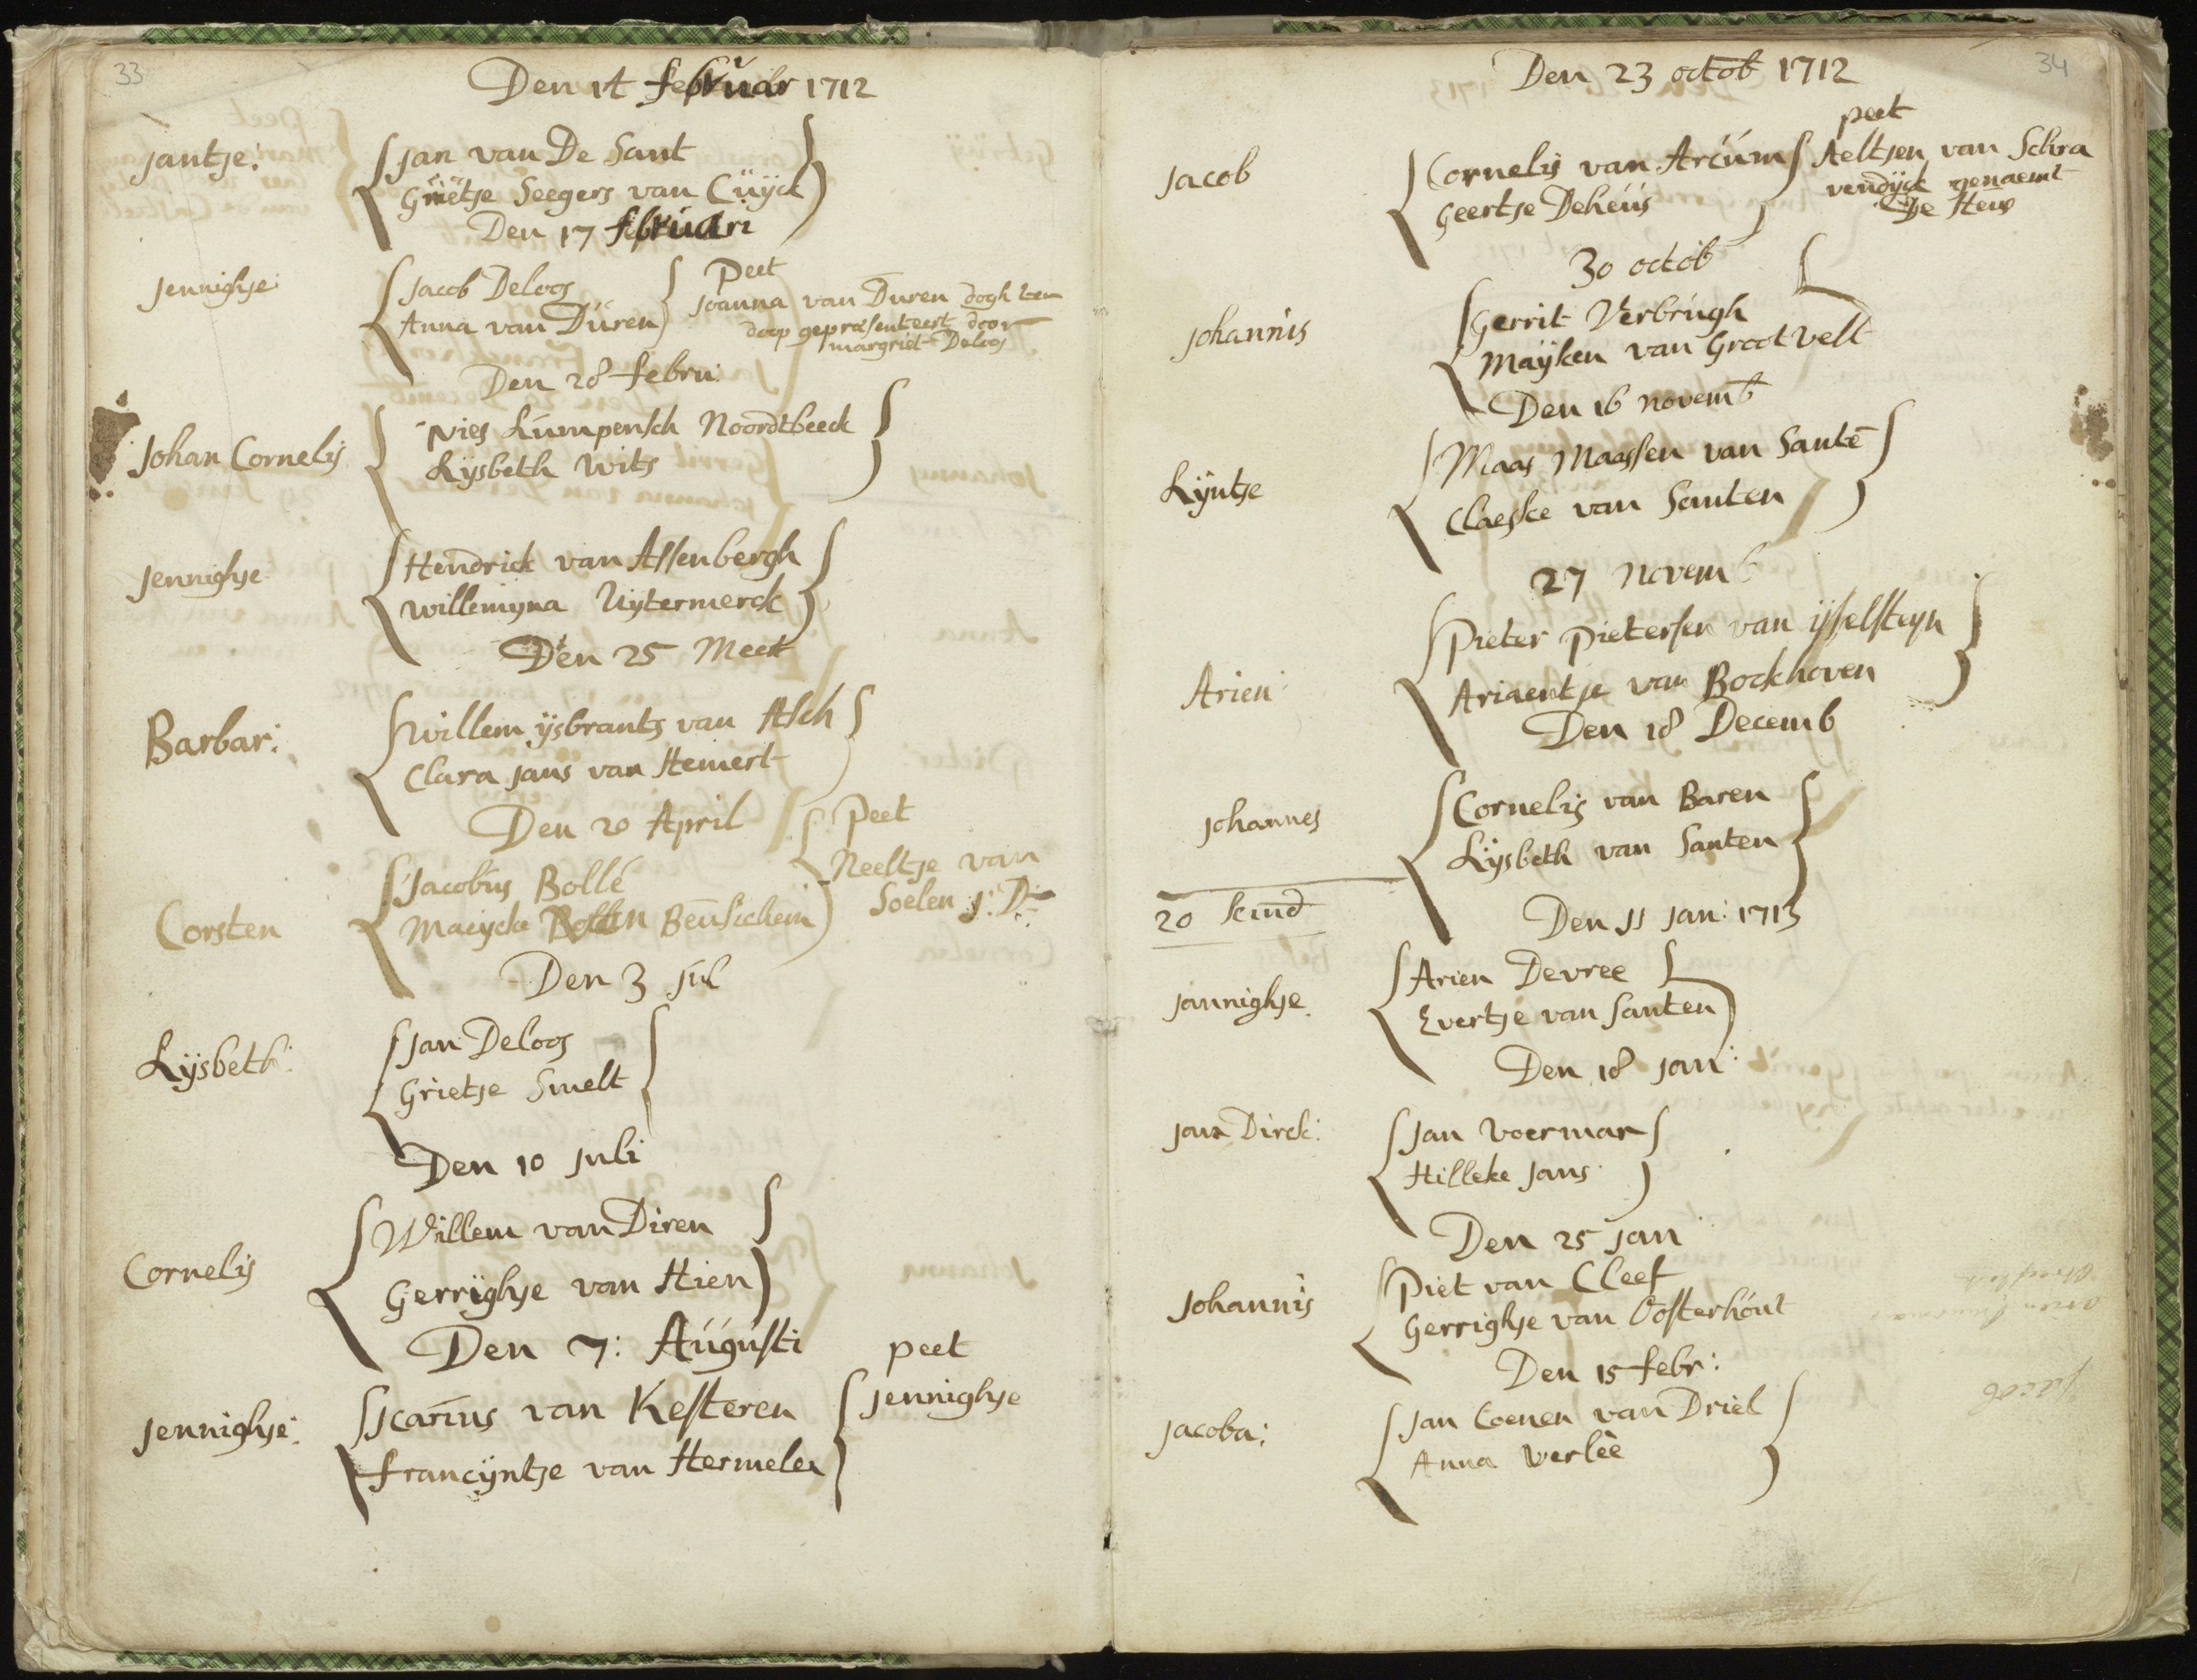 33
Den 14 februar 1712
Jantje:
Jan van De Sant
Grietje Seegers van Cüijck
Den 17 februari
Jennighje
Jacob Deloos
Anna van Düren
Peet
Joanna van Duren dogh ten
doop gepræsenteert door
margriet Deloos
Den 28 febru:
Johan Cornelis
Nies Lumpensch Noordtbeeck
Lijsbeth Wits
Jennighje
Hendrick van Assenbergh
Willemijna Uijtermerck
Den 25 Meert
Barbar:
Willem ijsbrants van Asch
Clara Jans van Hemert
Den 20 April
Corsten
Jacobus Bollé
Maeijcke Beusichem
Peet
Neeltje van
Soelen J: D:
Den 3 Jul
Lijsbeth:
Jan Deloos
Grietje Smelt
Den 10 Juli
Cornelis
Willem van Diren
Gerrighje van Hien
Den 7: Augusti
Jennighje:
Icarius van Kesteren
francijntje van Hermelen
peet
Jennighje
34
Den 23 octob 1712
Jacob
Cornelis van Arcum
Geertje Deheus
peet
Aeltjen van Schra
vendijck genaemt
De Heus
30 octob
Johannis
Gerrit Verbrugh
Maijken van Grootvelt
Den 16 novemb
Lijntje
Maas Maassen van Sante
Claeske van Santen
27 novemb
Arien
Pieter Pietersen van ijsselsteyn
Ariaentje van Bockhoven
Den 18 Decemb
Johannes
Cornelis van Baren
Lijsbeth van Santen
20 kind
Den 11 Jan: 1713
Jannighje
Arien Devree
Evertje van Santen
Den 18 Jan:
Jan Dirck:
Jan Voerman
Hilleke Jans
Den 25 Jan
Johannis
Piet van Cleef
Gerrighje van Oosterhout
Den 15 febr:
Jacoba:
Jan Coenen van Driel
Anna Verleè